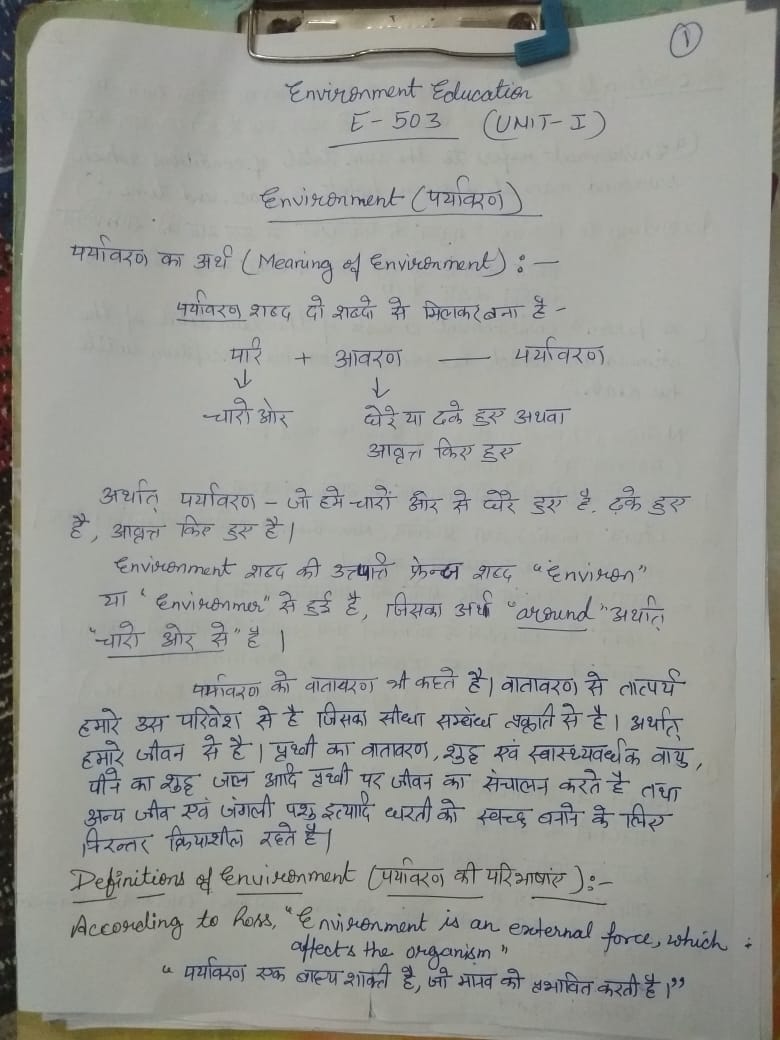 ①
Environment Education
E-503 (UNIT-I)
Environment (पर्यावरण)
पर्यावरण का अर्थ (Meaning of Environment) : —
पर्यावरण शब्द दो शब्दो से मिलकर बना है -
परि + आवरण — पर्यावरण
↓ ↓
चारो ओर घेरे या ढके हुए अथवा
आवृत्त किए हुए
अर्थात् पर्यावरण - जो हमे चारों ओर से घेरे हुए है, ढके हुए
है, आवृत्त किए हुए है।
Environment शब्द की उत्पत्ति फ्रेन्च शब्द "Environ"
या "Environmer" से हुई है, जिसका अर्थ "around" अर्थात्
"चारो ओर से" है।
पर्यावरण को वातावरण भी कहते है। वातावरण से तात्पर्य
हमारे उस परिवेश से है जिसका सीधा सम्बंध प्रकृति से है। अर्थात्
हमारे जीवन से है। पृथ्वी का वातावरण, शुद्ध एवं स्वास्थ्यवर्धक वायु,
पीने का शुद्ध जल आदि पृथ्वी पर जीवन का संचालन करते है तथा
अन्य जीव एवं जंगली पशु इत्यादि धरती को स्वच्छ बनाने के लिए
निरन्तर क्रियाशील रहते है।
Definitions of Environment (पर्यावरण की परिभाषाएं) :-
According to Ross, "Environment is an external force, which
affects the organism"
"पर्यावरण एक बाह्य शक्ति है, जो मानव को प्रभावित करती है।"